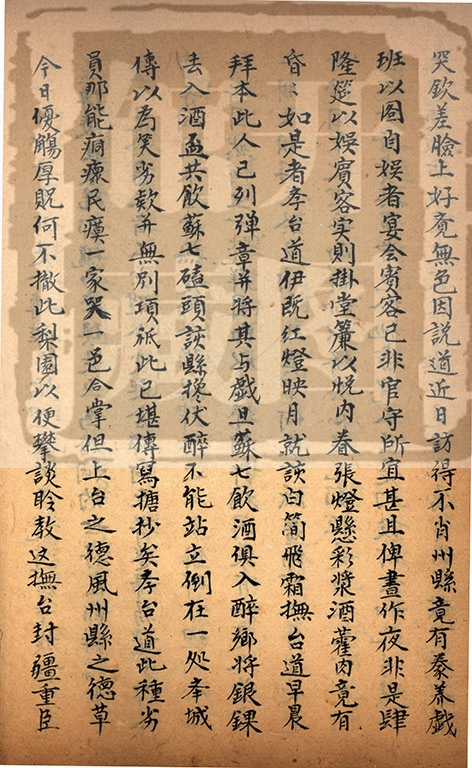 哭欽差臉上好竟無色因説道近日訪得不肖州縣竟有豢养戯
班以圖自娛者宴会賓客已非官守所宜甚且俾晝作夜非是肆
隆筵以娛賓客实則掛堂簾以悦内眷張燈懸彩漿酒藿肉竟有
昏〻如是者孝台道伊既红燈映月就該白簡飛霜撫台道早晨
拜本此人已列弹章并將其与戯旦蘇七飲酒俱入醉鄉将銀錁
丢入酒盃共飲蘇七磕頭該縣搀伏醉不能站立倒在一処夲城
傳以為笑劣欵并無別項祗此已堪傳寫搪抄矣孝台道此種劣
員那能痌瘝民瘼一家哭一邑合掌但上台之德風州縣之德草
今日優觴厚貺何不撤此梨園以便攀談聆教这撫台封疆重臣